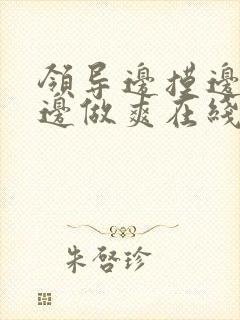 領导邊摸邊
邊做爽在綫
朱啓珍